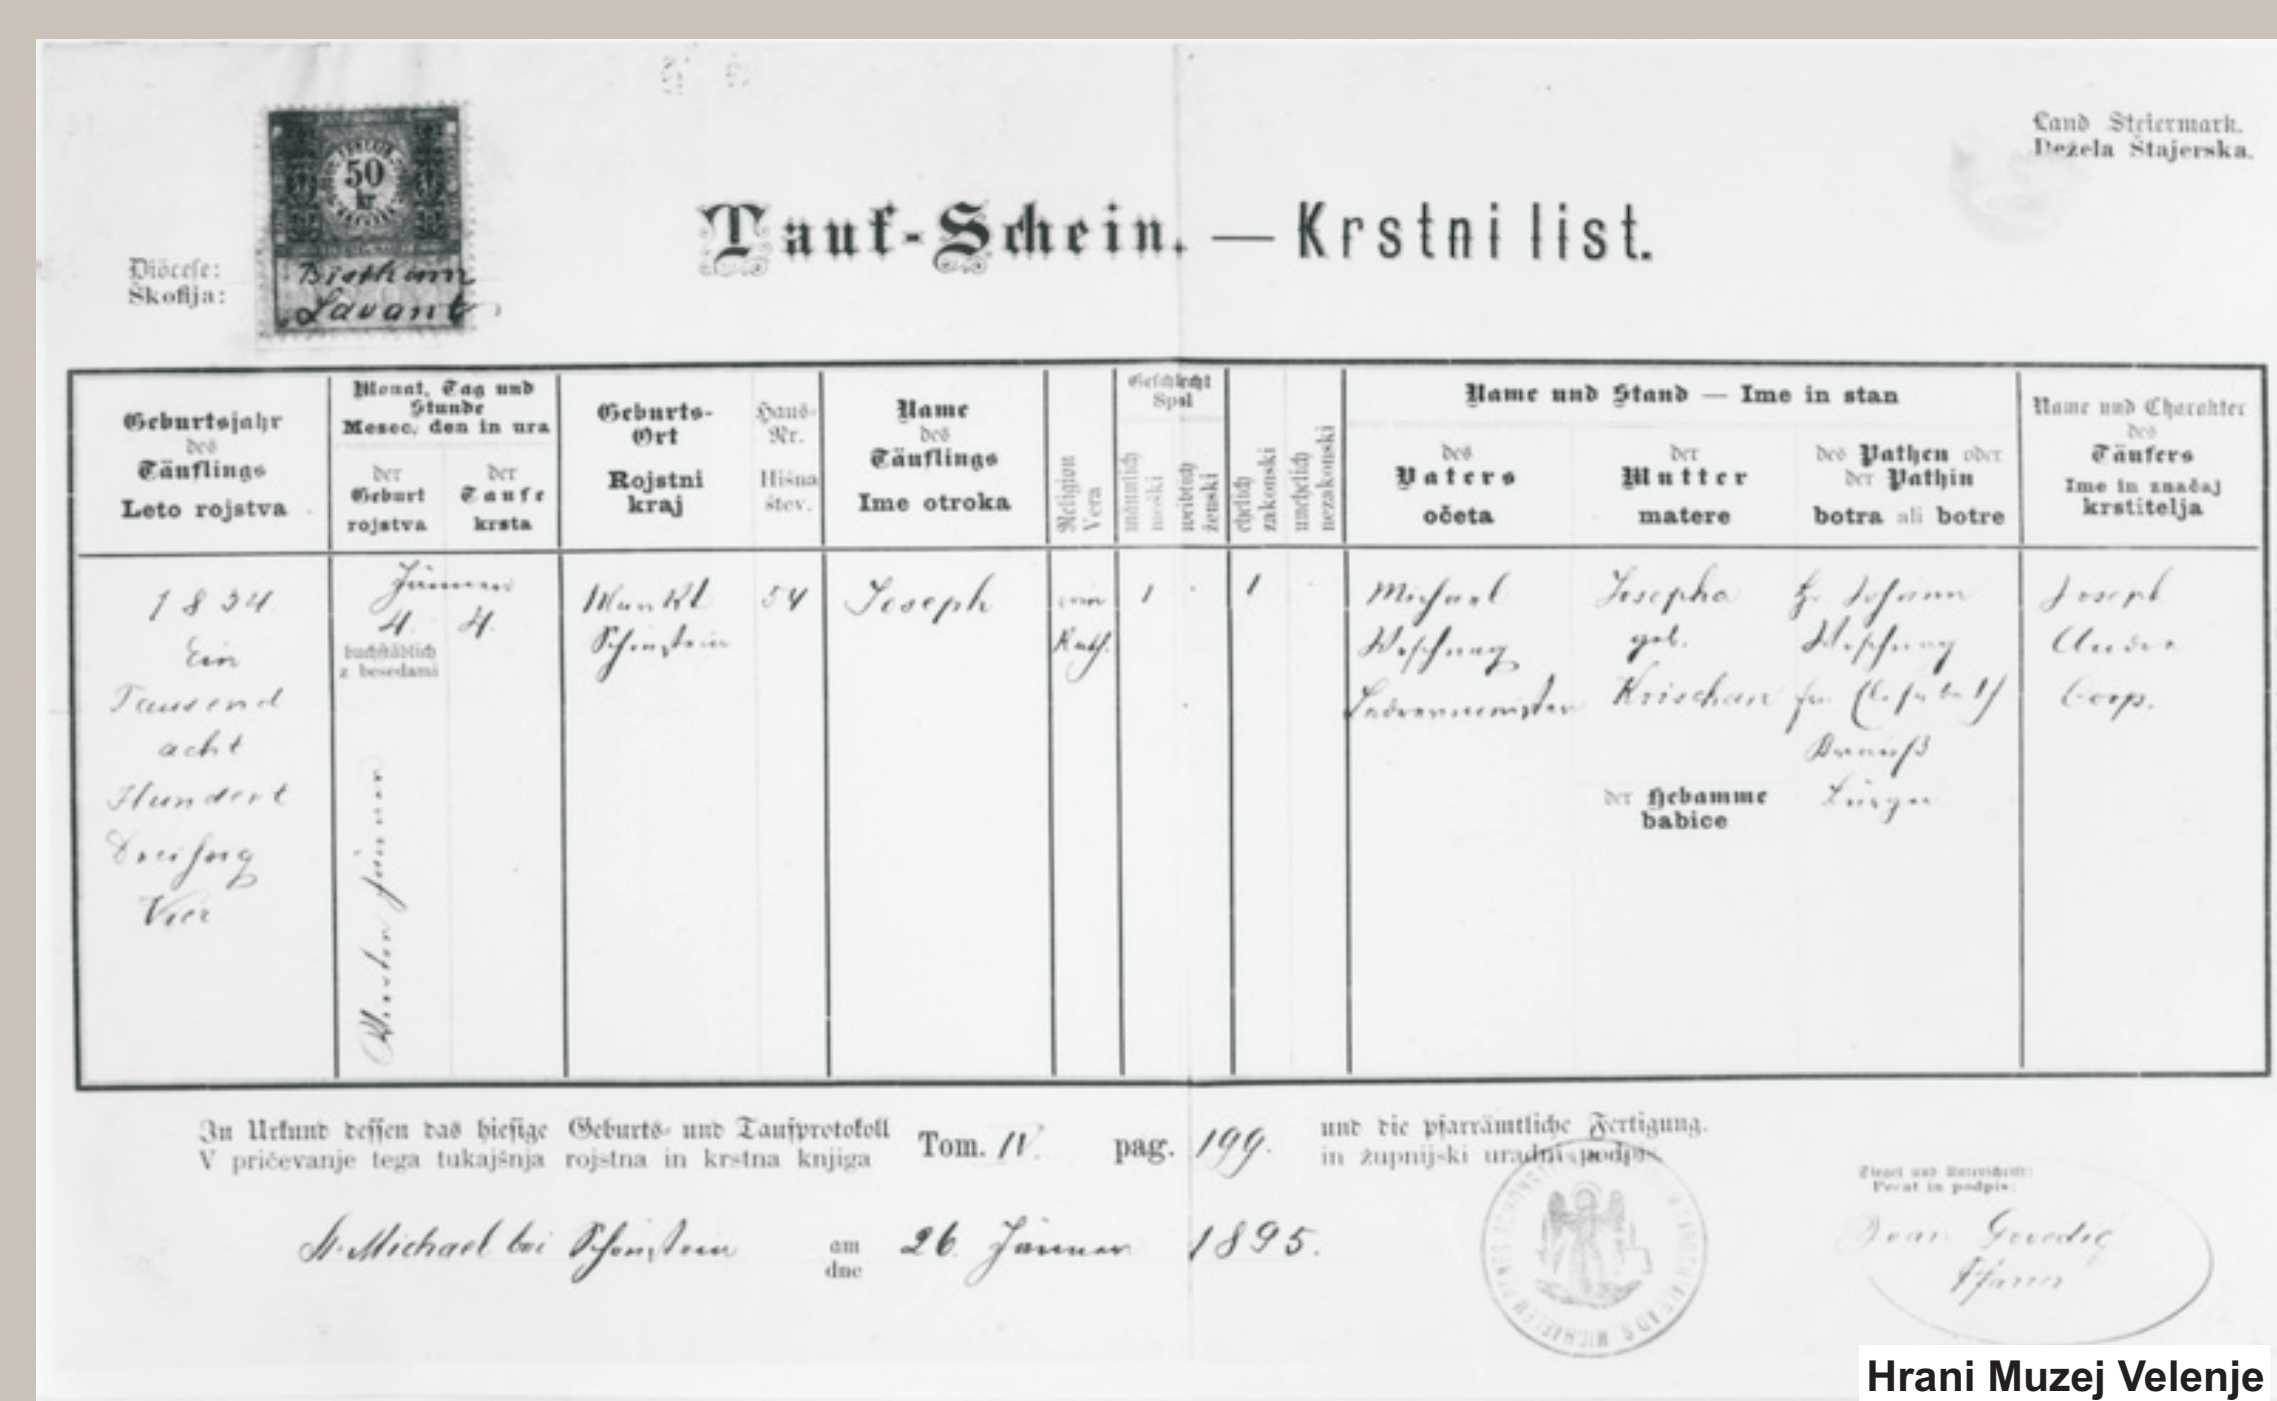 Land Steiermark.
Dežela Štajerska.
50
kr
Tauf-Schein. — Krstni list.
Diöcese:
Škofija:
Bisthum
Lavant
Geburtsjahr
des
Täuflings
Leto rojstva
Monat, Tag und
Stunde
Mesec, den in ura
der
Geburt
rojstva
der
Taufe
krsta
Geburts-
Ort
Rojstni
kraj
Haus-
Nr.
Hišna
štev.
Name
des
Täuflings
Ime otroka
Religion
Vera
Geschlecht
Spol
männlich
moški
weiblich
ženski
ehelich
zakonski
unehelich
nezakonski
Name und Stand — Ime in stan
des
Vaters
očeta
der
Mutter
matere
des Pathen oder
der Pathin
botra ali botre
Name und Charakter
des
Täufers
Ime in značaj
krstitelja
1834
Ein
Tausend
acht
Hundert
Dreißig
Vier
Jänner
4. 4.
buchstäblich
z besedami
Vierten Jänner
Markt
Schönstein
54
Joseph
Kath.
1
1
Michael
Woschnag
Lederermeister
Josepha
geb.
Krischan
der Hebamme
babice
Johann
Woschnag
Joseph
Corp.
In Urkund dessen das hiesige Geburts- und Taufprotokoll
V pričevanje tega tukajšnja rojstna in krstna knjiga
Tom. IV. pag. 199.
und die pfarrämtliche Fertigung.
in župnijski uradni podpis.
Siegel und Unterschrift:
Pečat in podpis:
St. Michael bei Schönstein
am
dne
26. Jänner 1895.
Ivan Govedič
Pfarrer
Hrani Muzej Velenje